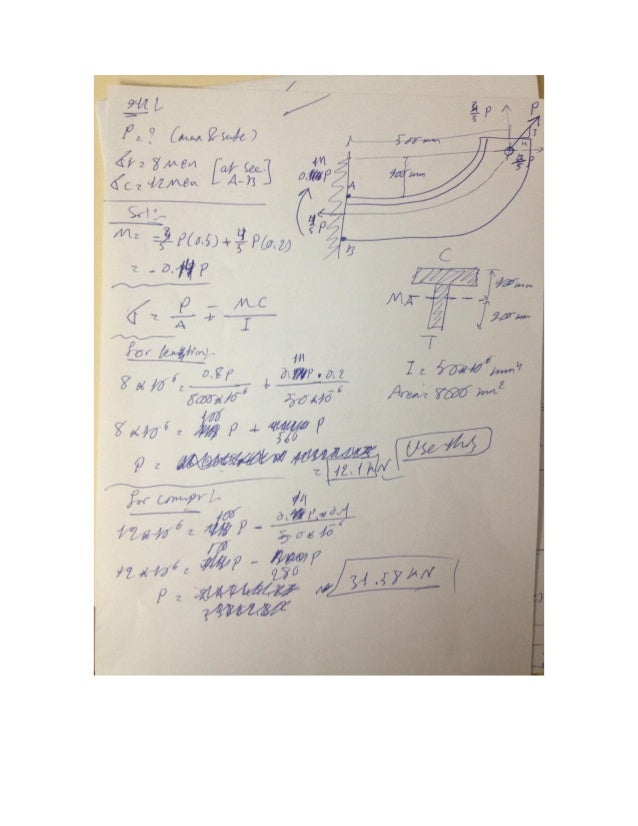 P = ? (max & safe)
σt = 8 MPa
σc = 12 MPa
[at sec A-B]
Sol:-
M = -3/5 P(0.5) + 4/5 P(0.2)
= -0.14 P
σ = P/A ± MC/I
for tension:-
8 × 10^6 = 0.8P / 8000×10^-6 + 0.14P × 0.2 / 50×10^-6
8 × 10^6 = 100 P + 560 P
P =
= 12.1 kN
Use this
for compr:-
12 × 10^6 = 100 P - / 50×10^-6
12 × 10^6 = 100 P - 280 P
P =
31.58 kN
3/5 P
P
500 mm
3
4
400 mm
A
4/5 P
B
C
100 mm
200 mm
T
I = 50×10^6 mm^4
Area = 8000 mm^2